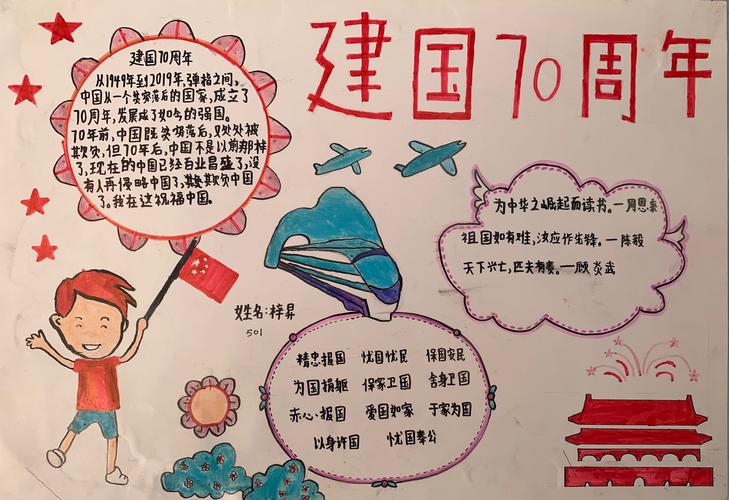 建国70周年
建国70周年
从1949年到2019年,弹指之间,
中国从一个贫穷落后的国家,成立了
70周年,发展成了如今的强国。
70年前,中国既贫穷落后,又处处被
欺负,但70年后,中国不是以前那样
了,现在的中国已经百业昌盛了,没
有人再侵略中国了,欺负中国
了。我在这祝福中国。
为中华之崛起而读书。—周恩来
祖国如有难,汝应作先锋。—陈毅
天下兴亡,匹夫有责。—顾炎武
姓名:梓昇
501
精忠报国 忧国忧民 保国安民
为国捐躯 保家卫国 舍身卫国
赤心报国 爱国如家 于家为国
以身许国 忧国奉公